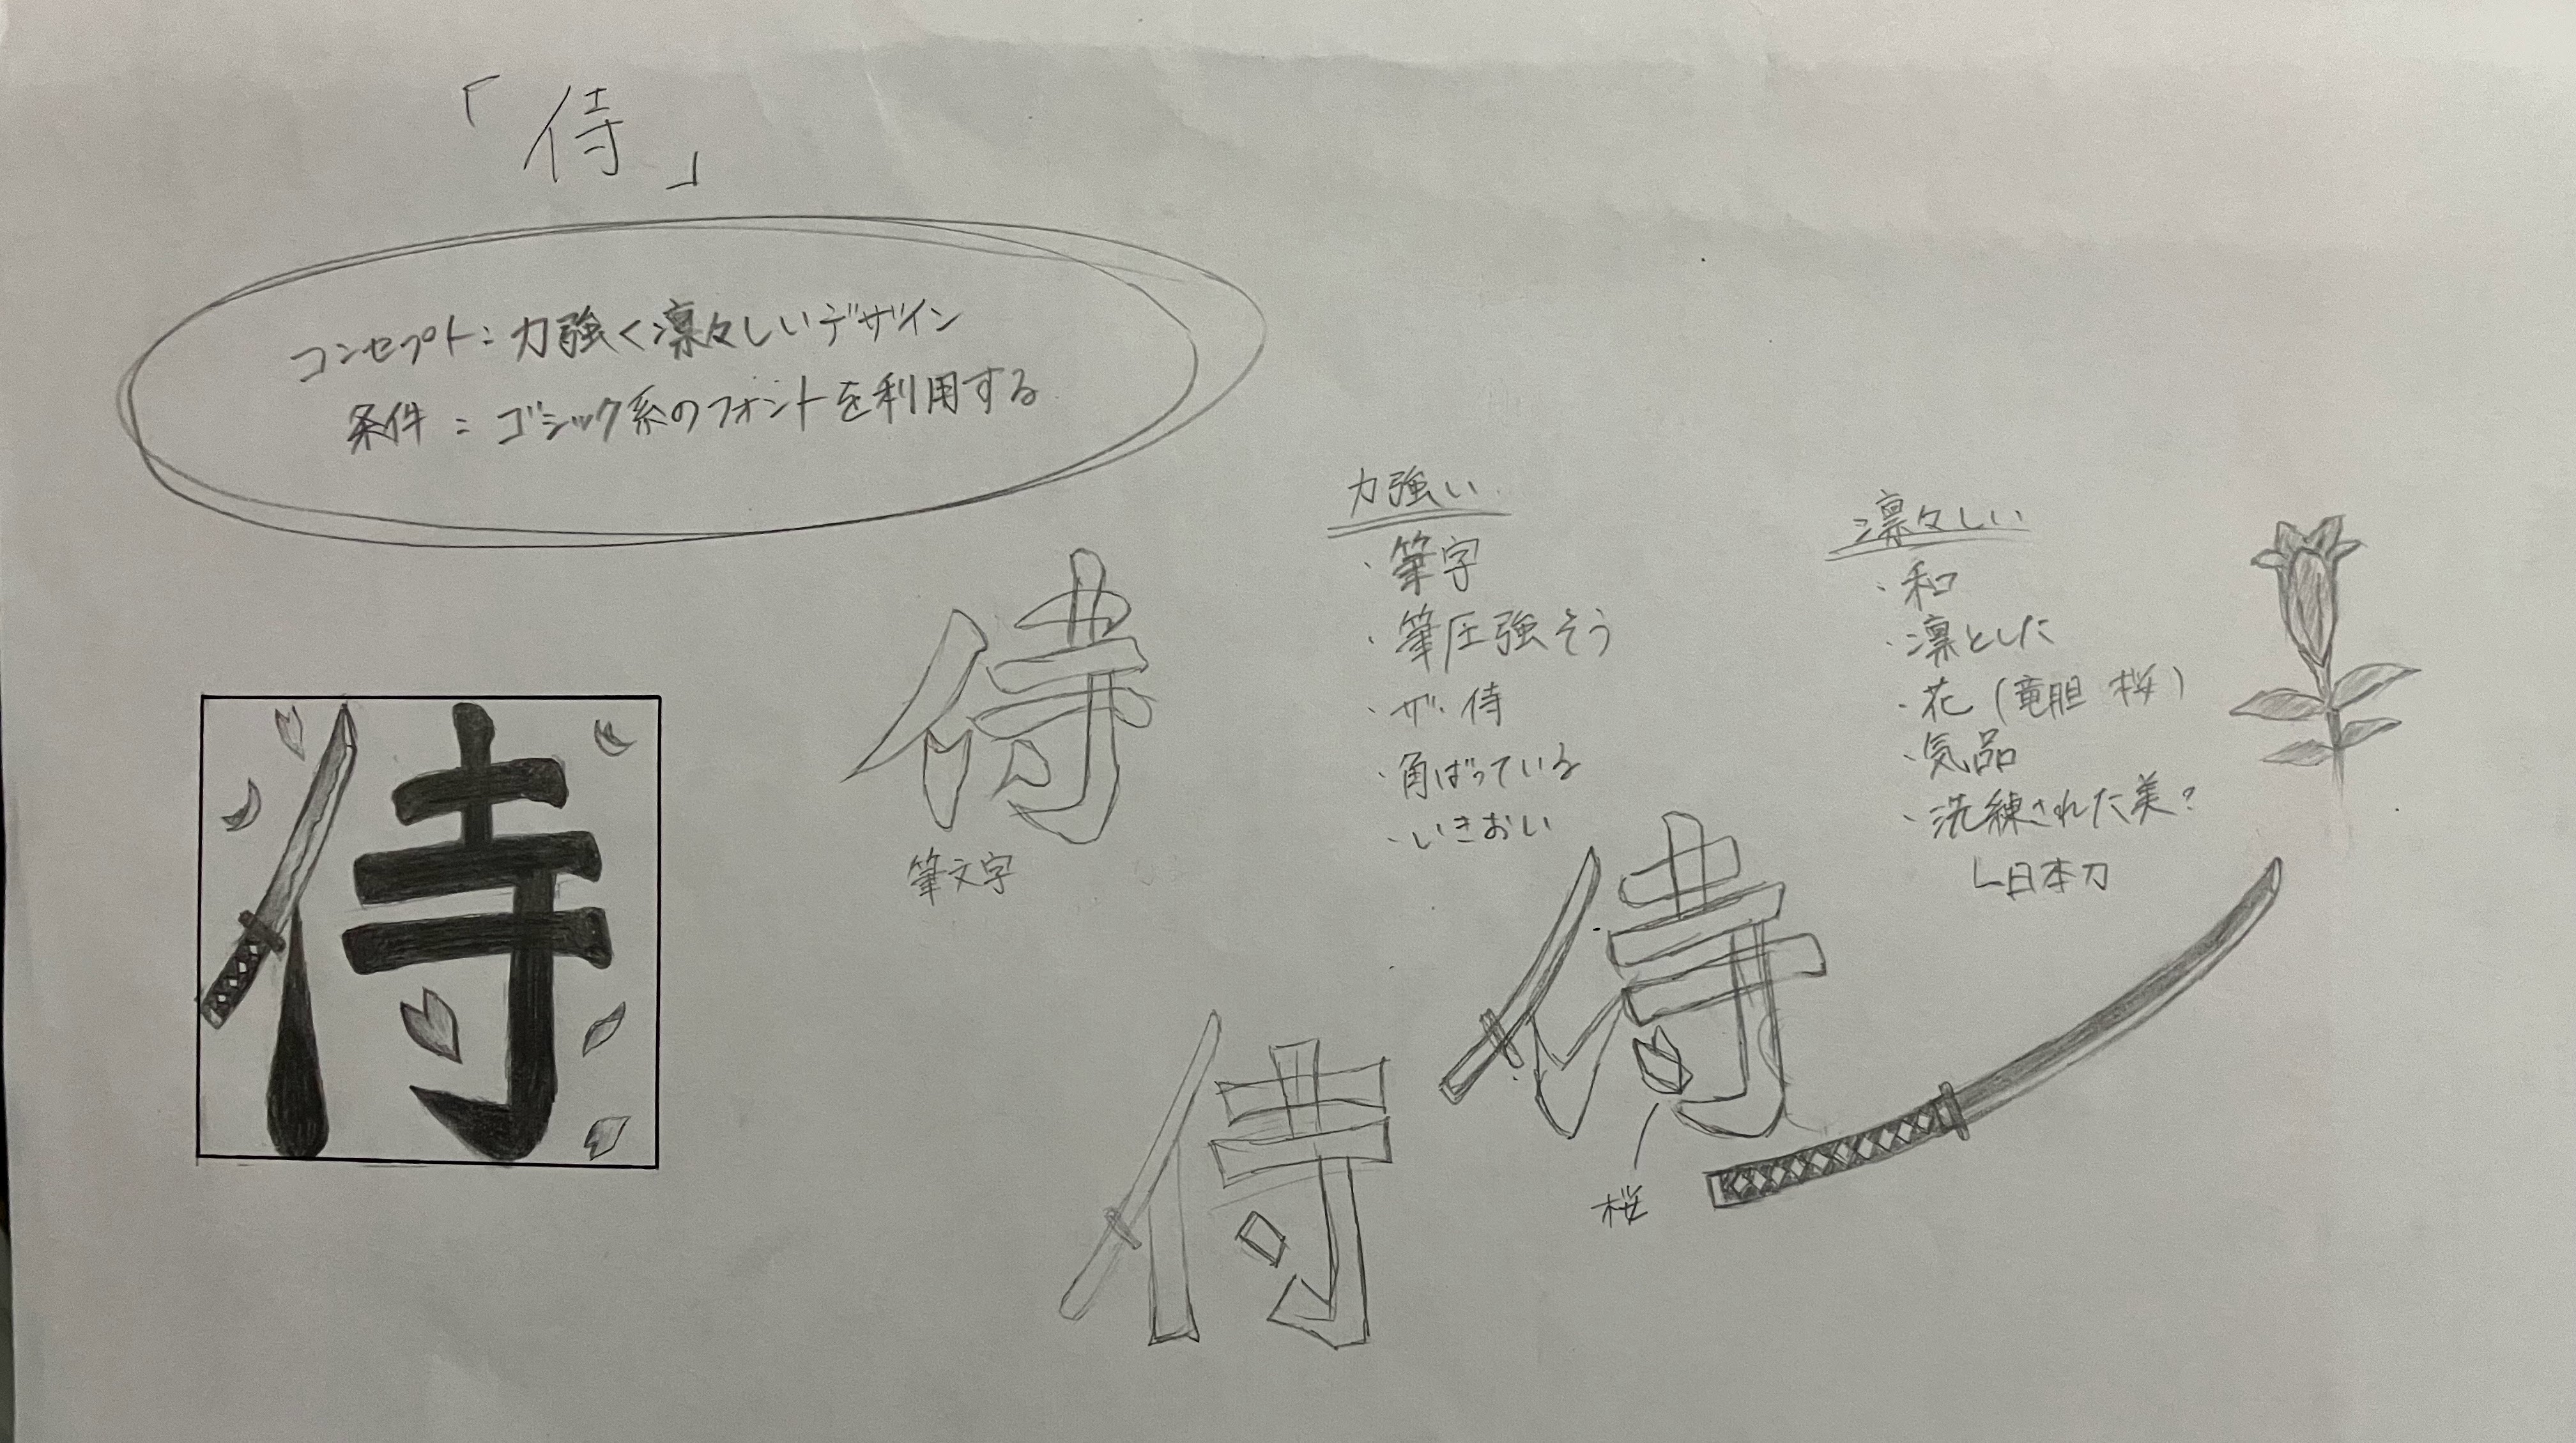 「侍」
コンセプト：力強く凛々しいデザイン
条件：ゴシック系のフォントを利用する
力強い
・筆字
・筆圧強そう
・ザ・侍
・角ばっている
・いきおい
凛々しい
・和
・凛とした
・花（竜胆 桜）
・気品
・洗練された美？
└日本刀
侍
筆文字
侍
侍
桜
侍